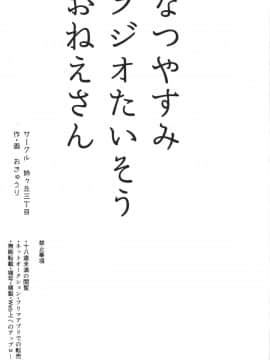 なつやすみ
ラジオたいそう
おねえさん
サークル 姉ヶ丘三丁目
作・画 おきゅうり
禁止事項
・十八歳未満の閲覧
・ネットオークション・フリマアプリでの転売
・無断転載・複写・複製・Web上へのアップロー